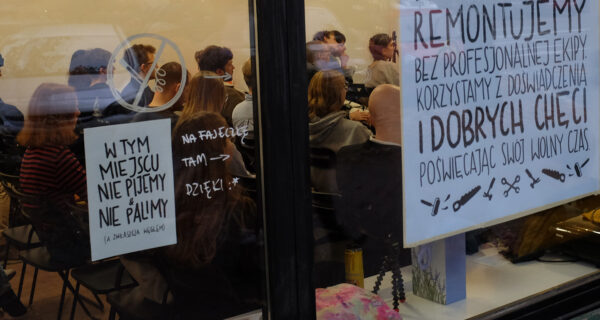 W TYM
MIEJSCU
NIE PIJEMY
&
NIE PALIMY
(A ZWŁASZCZA WĘGLEM)
NA FAJECZKĘ
TAM →
DZIĘKI :*
REMONTUJEMY
BEZ PROFESJONALNEJ EKIPY
KORZYSTAMY Z DOŚWIADCZENIA
I DOBRYCH CHĘCI
POŚWIĘCAJĄC SWÓJ WOLNY CZAS